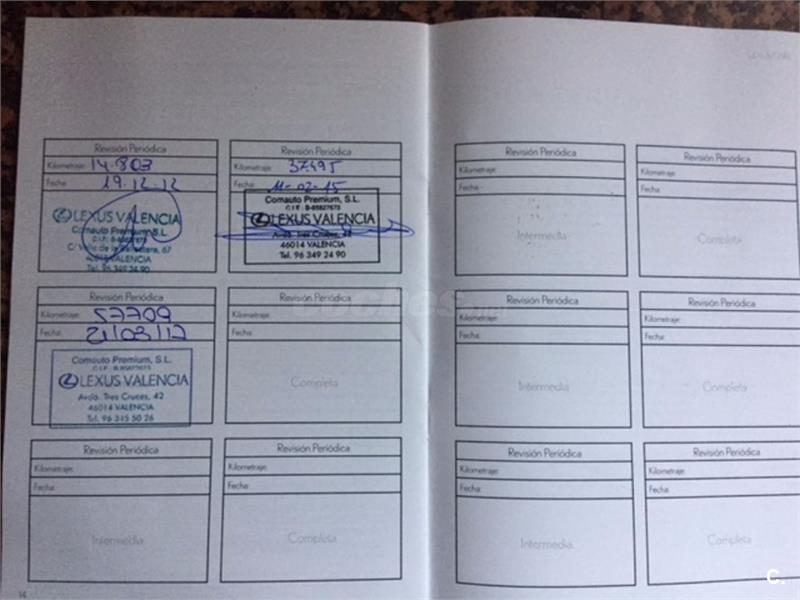 Revisión Periódica
Kilometraje: 14.803
Fecha: 19.12.12
LEXUS VALENCIA
Comauto Premium S.L.
46014 VALENCIA
Tel. 96 349 24 90
Revisión Periódica
Kilometraje: 37495
Fecha: 11-02-15
Comauto Premium, S.L.
C.I.F.: B-65827673
LEXUS VALENCIA
Avda. Tres Cruces, 42
46014 VALENCIA
Tel. 96 349 24 90
Revisión Periódica
Kilometraje: 57709
Fecha: 21/03/17
Comauto Premium, S.L.
LEXUS VALENCIA
Avda. Tres Cruces, 42
46014 VALENCIA
Tel. 96 345 50 26
Revisión Periódica
Kilometraje:
Fecha:
Completa
Revisión Periódica
Kilometraje:
Fecha:
Intermedia
Revisión Periódica
Kilometraje:
Fecha:
Completa
14
Revisión Periódica
Kilometraje:
Fecha:
Intermedia
Revisión Periódica
Kilometraje:
Fecha:
Completa
Revisión Periódica
Kilometraje:
Fecha:
Intermedia
Revisión Periódica
Kilometraje:
Fecha:
Completa
Revisión Periódica
Kilometraje:
Fecha:
Intermedia
Revisión Periódica
Kilometraje:
Fecha:
Completa
coches.net
C.